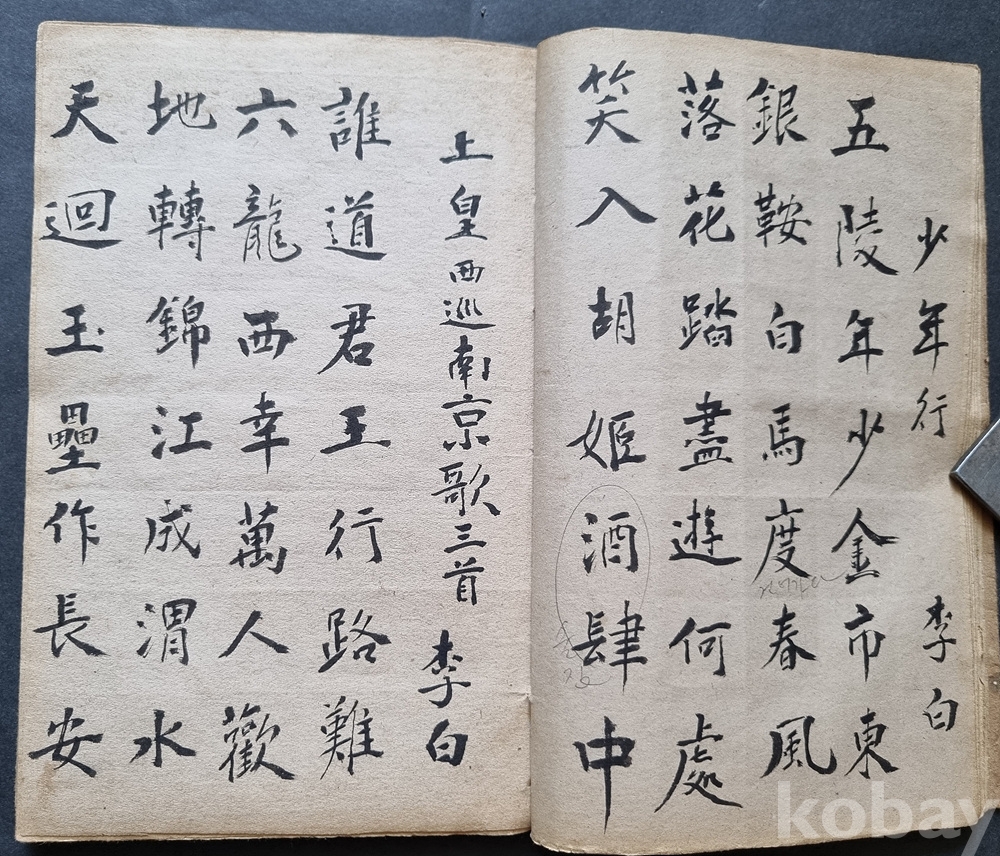 少年行 李白
五陵年少金市東
銀鞍白馬度春風
落花踏盡遊何處
笑入胡姬酒肆中
上皇西巡南京歌三首 李白
誰道君王行路難
六龍西幸萬人歡
地轉錦江成渭水
天迴玉壘作長安
kobay